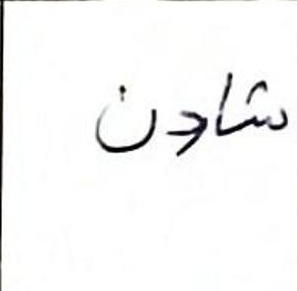 شادن